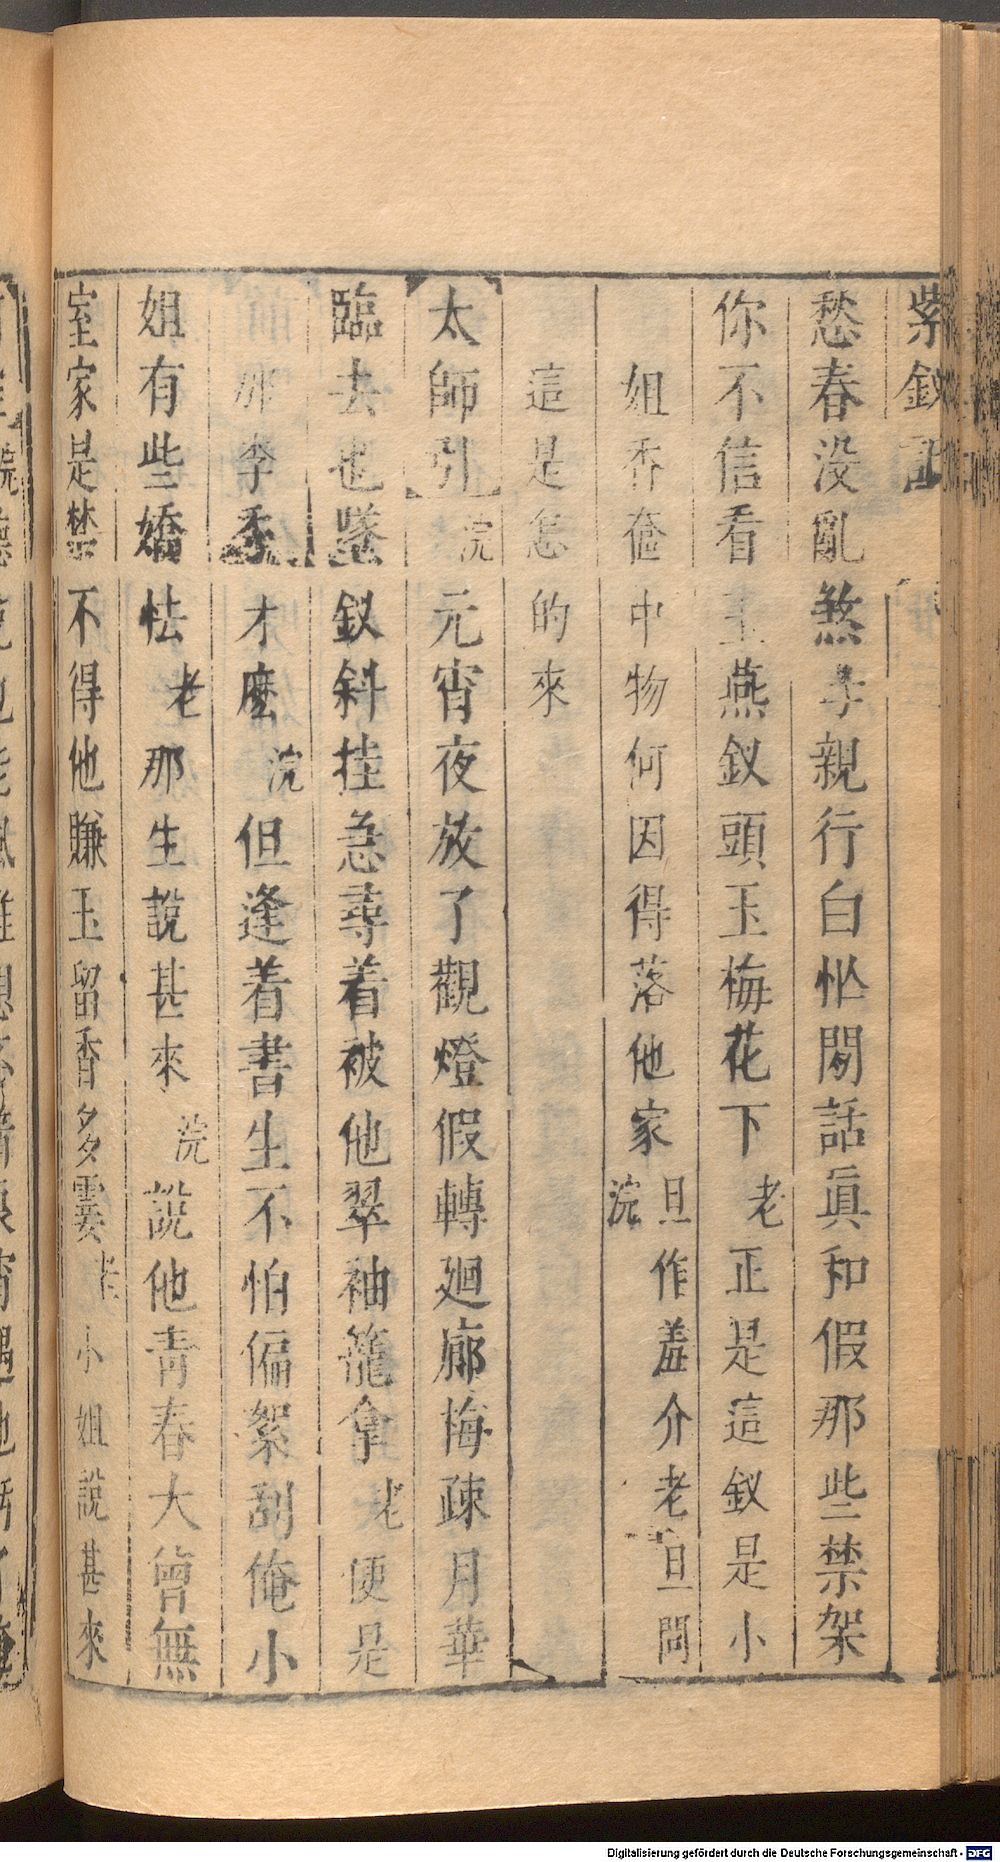 紫釵記
愁春没亂煞 親行白怭閑話眞和假那些禁架
你不信看玉燕釵頭玉梅花下老正是這釵是小
姐香奩中物何因得落他家旦作羞介老旦問浣
這是怎的來
太師引浣元宵夜放了觀燈假轉廻廊梅疎月華
臨去也墜釵斜挂急尋着被他翠袖籠拿老便是
前那李秀才麽浣但逢着書生不怕偏絮刮俺小
姐有些嬌怯老那生說甚來浣說他靑春大曾無
室家是禁不得他賺玉留香多霎老小姐說甚來
Digitalisierung gefördert durch die Deutsche Forschungsgemeinschaft - DFG